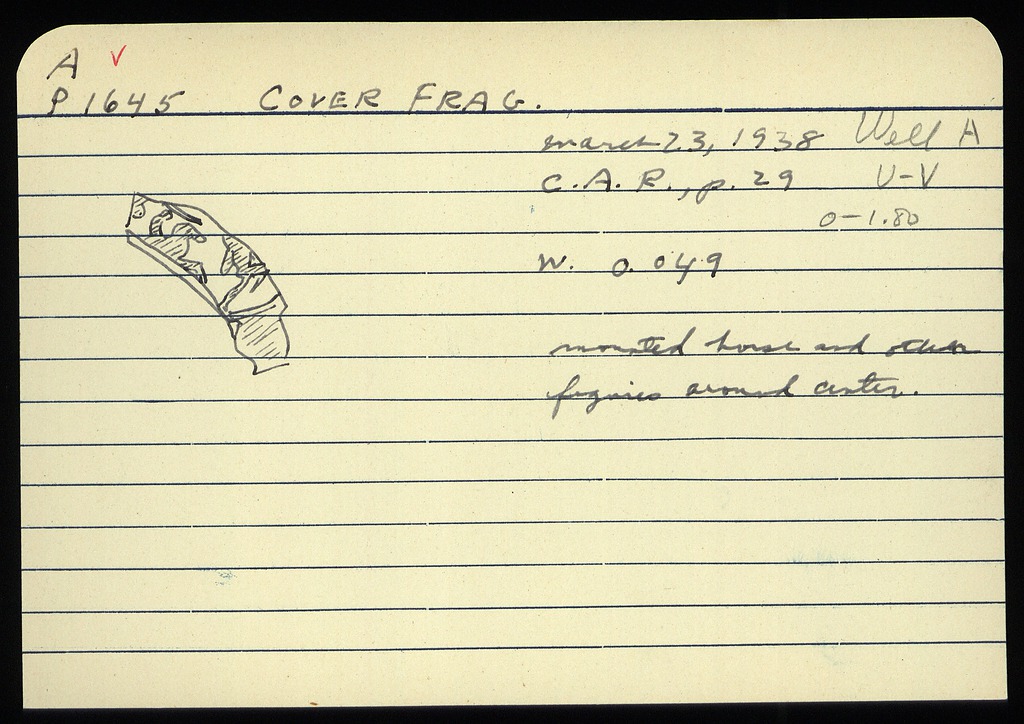 A v
P 1645 COVER FRAG.
march 23, 1938 Well A
C.A.R., p. 29 U-V
0-1.80
W. 0.049
mounted horse and other
figures around center.